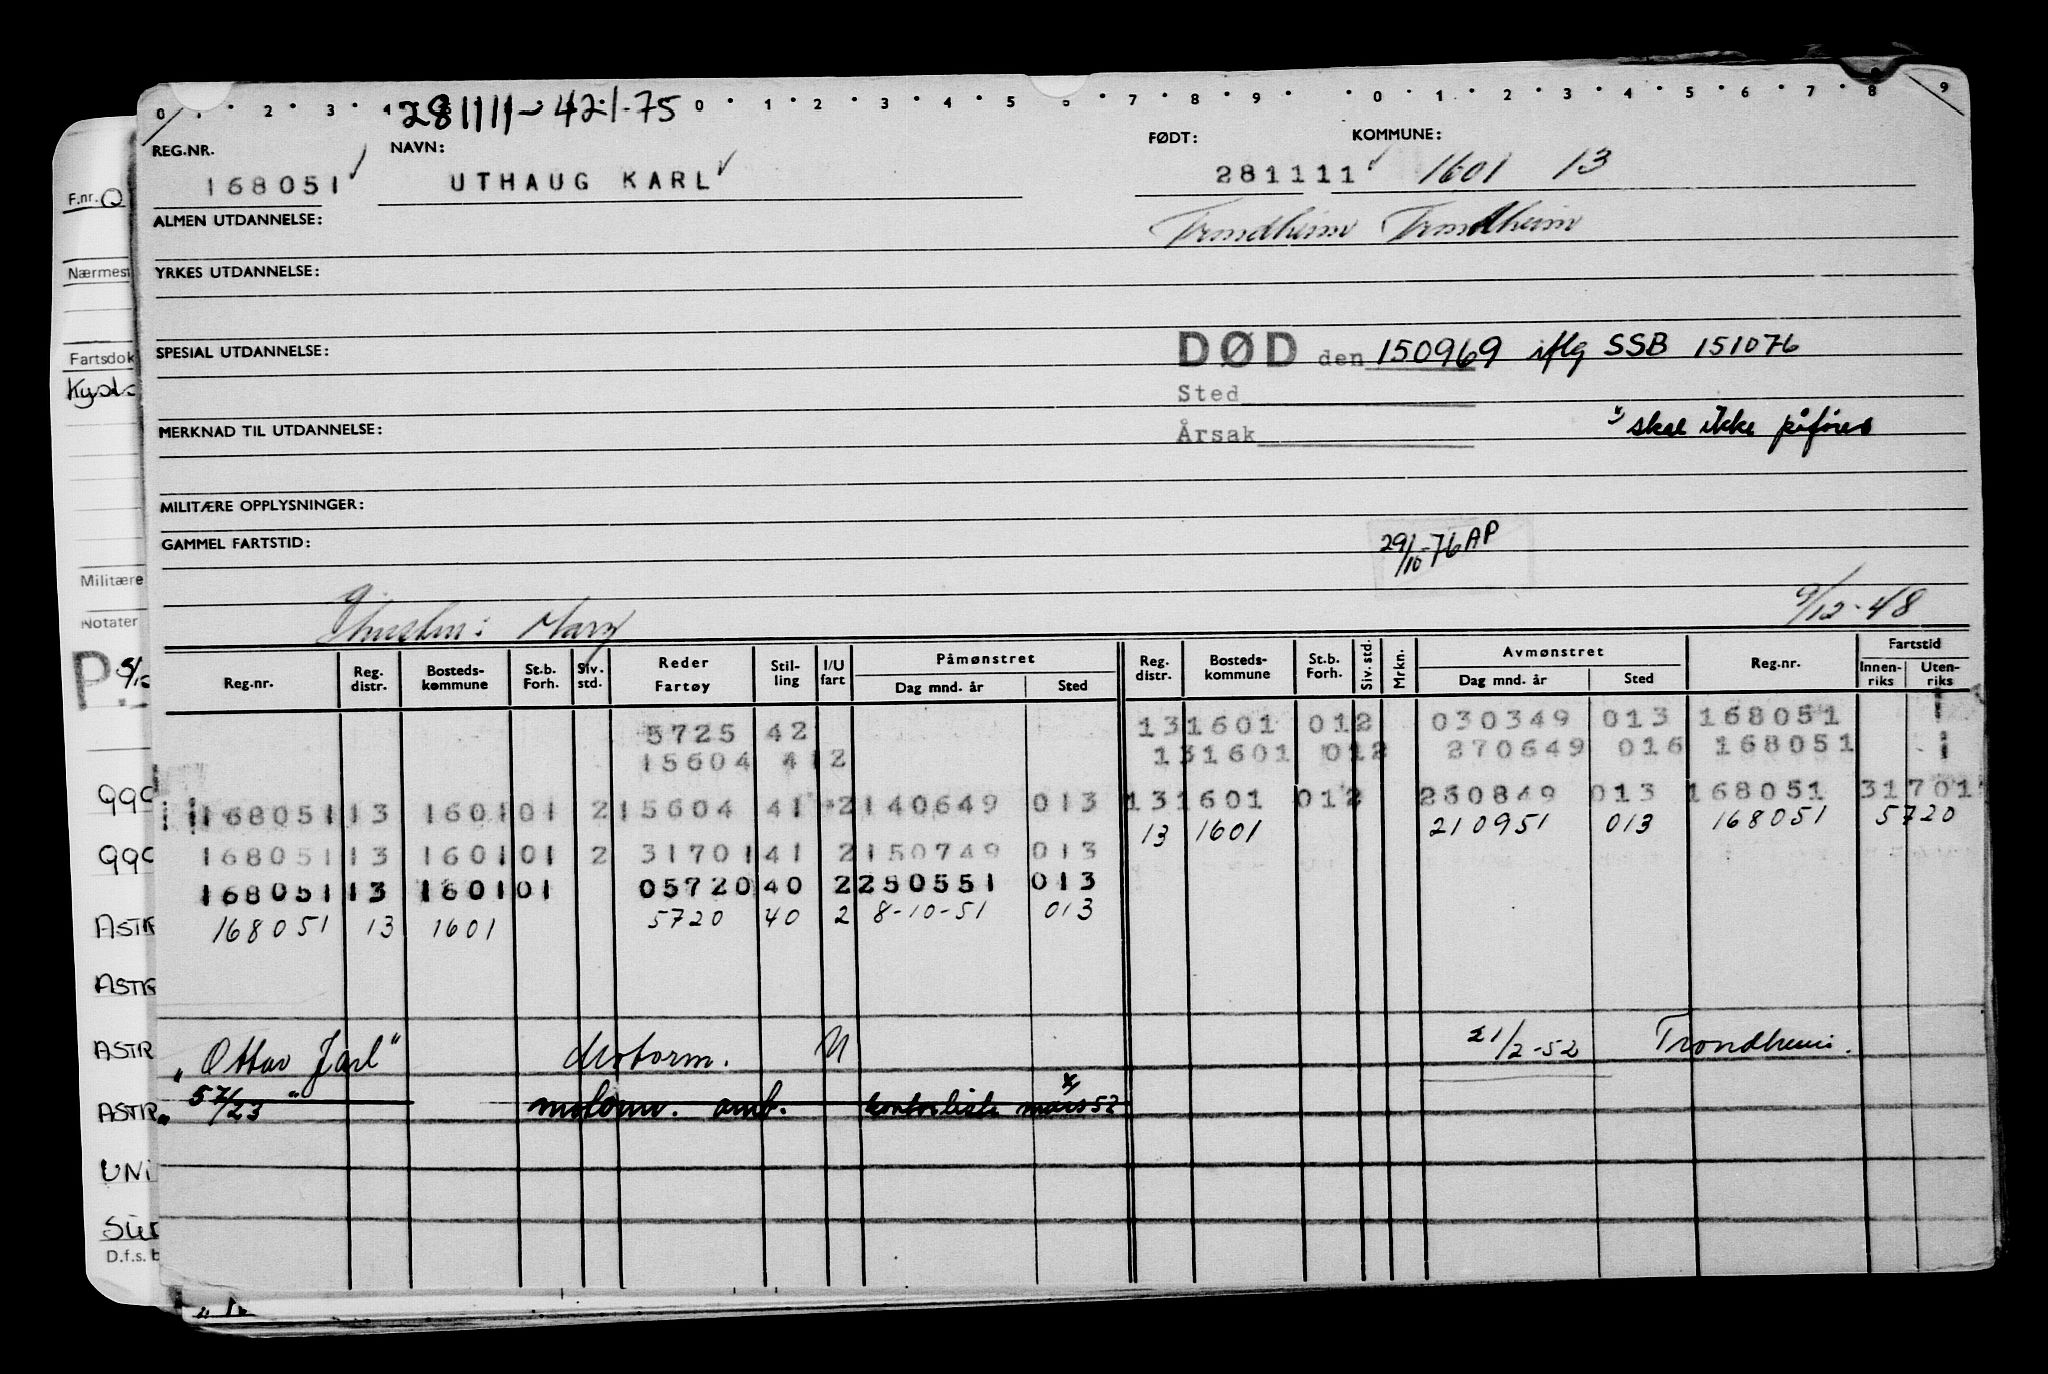 0 · 2 · 3 · 4 0 · 1 · 2 · 3 · 4 · 5 · 6 · 7 · 8 · 9 · 0 · 1 · 2 · 3 · 4 · 5 · 6 · 7 · 8 · 9
281111-421-75
REG.NR. NAVN: FØDT: KOMMUNE:
168051 UTHAUG KARL 281111 1601 13
ALMEN UTDANNELSE: Trondheim Trondheim
YRKES UTDANNELSE:
SPESIAL UTDANNELSE: DØD den 150969 iflg SSB 151076
Sted
MERKNAD TIL UTDANNELSE: Årsak x) skal ikke påføres
MILITÆRE OPPLYSNINGER:
GAMMEL FARTSTID: 29/10-76 AP
Mary 9/12-48
Reg.nr. Reg. distr. Bosteds-kommune St.b. Forh. Siv. std. Reder Fartøy Stil-ling I/U fart Påmønstret Dag mnd. år Sted Reg. distr. Bosteds-kommune St.b. Forh. Siv. std. Mrkn. Avmønstret Dag mnd. år Sted Reg.nr. Fartstid Innen-riks Uten-riks
5725 42 131601 012 030349 013 168051
15604 412 131601 012 270649 016 168051
168051 13 1601 01 2 15604 41 2 140649 013 131601 012 013 168051 31701
13 1601 210951 013 168051 5720
168051 13 1601 01 2 31701 41 2 150749 013
168051 13 1601 01 05720 40 2 250551 013
168051 13 1601 5720 40 2 8-10-51 013
"Ottar Jarl" Motorm. U 21/2-52 Trondheim.
" 57/23 " motorm. omb. kontrolliste mars 52 x)
F.nr.
Nærmest
Fartsdok
Kyst
Militære
Notater
P
ASTR
UNI
D.f.s. b